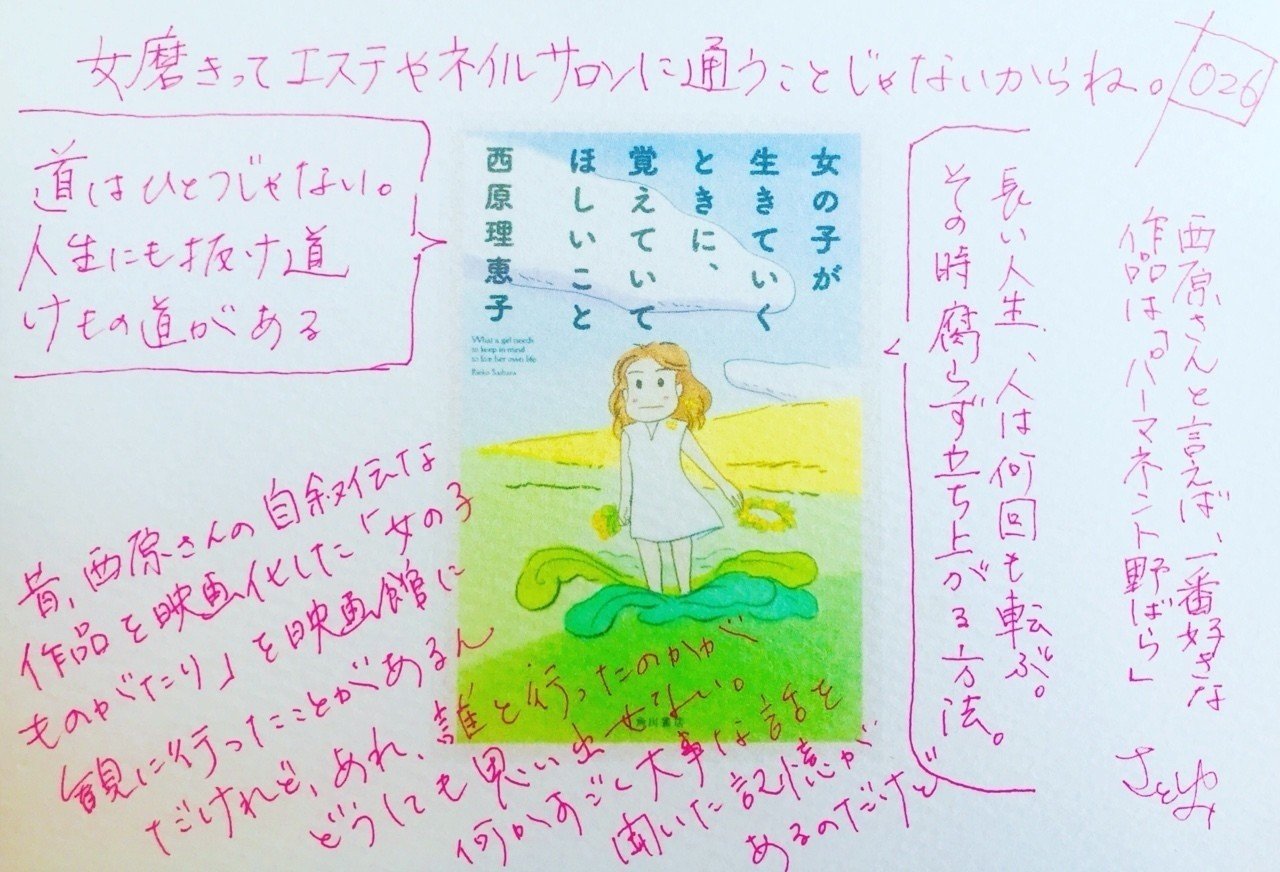 女磨きってエステやネイルサロンに通うことじゃないからね。
026
道はひとつじゃない。
人生にも抜け道
けもの道がある
女の子が
生きていく
ときに、
覚えていて
ほしいこと
西原理恵子
What a girl needs
to keep in mind
to live her own life
Rieko Saibara
角川書店
長い人生、人は何回も転ぶ。
その時腐らず立ち上がる方法。
西原さんと言えば、一番好きな
作品は「パーマネント野ばら」
さとゆみ
昔、西原さんの自叙伝な
作品を映画化した「女の子
ものがたり」を映画館に
観に行ったことがあるん
だけれど、あれ、誰と行ったのかが
どうしても思い出せない。
何かすごく大事な話を
聞いた記憶が
あるのだけど